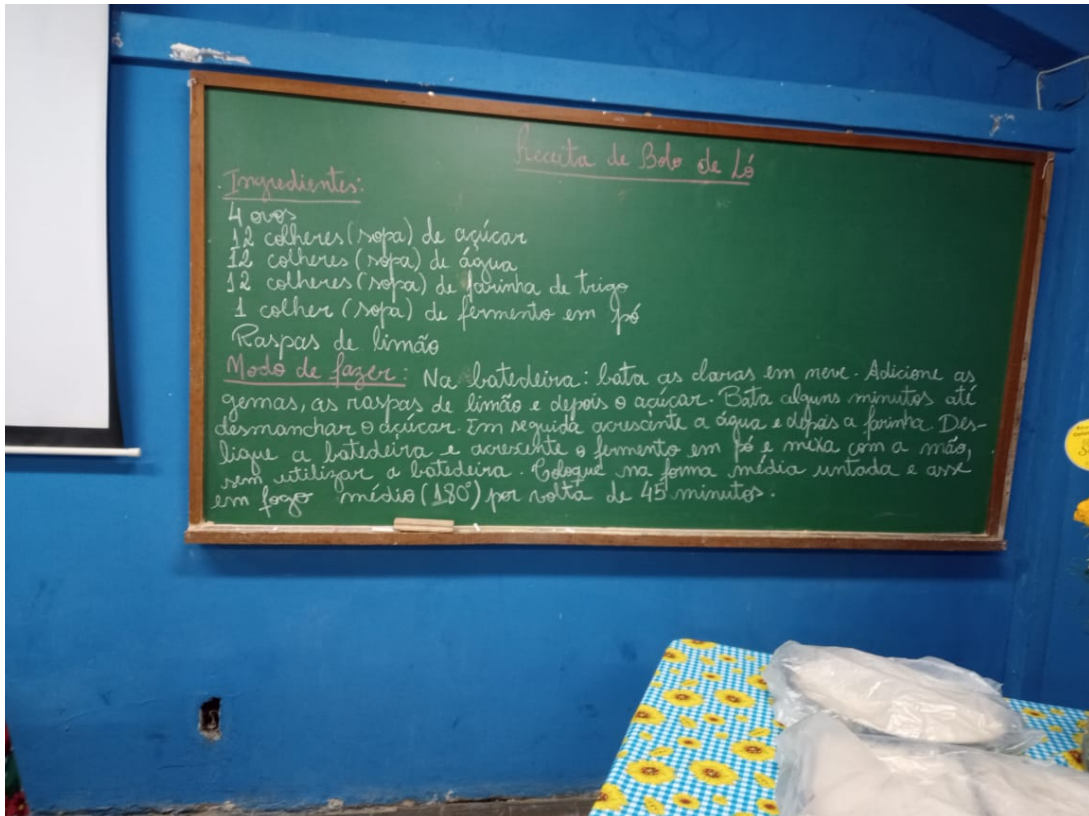 Receita de Bolo de Ló
Ingredientes:
4 ovos
12 colheres (sopa) de açúcar
12 colheres (sopa) de água
12 colheres (sopa) de farinha de trigo
1 colher (sopa) de fermento em pó
Raspas de limão
Modo de fazer: Na batedeira: bata as claras em neve. Adicione as
gemas, as raspas de limão e depois o açúcar. Bata alguns minutos até
desmanchar o açúcar. Em seguida acrescente a água e depois a farinha. Des-
ligue a batedeira e acrescente o fermento em pó e mexa com a mão,
sem utilizar a batedeira. Coloque na forma média untada e asse
em fogo médio (180°) por volta de 45 minutos.